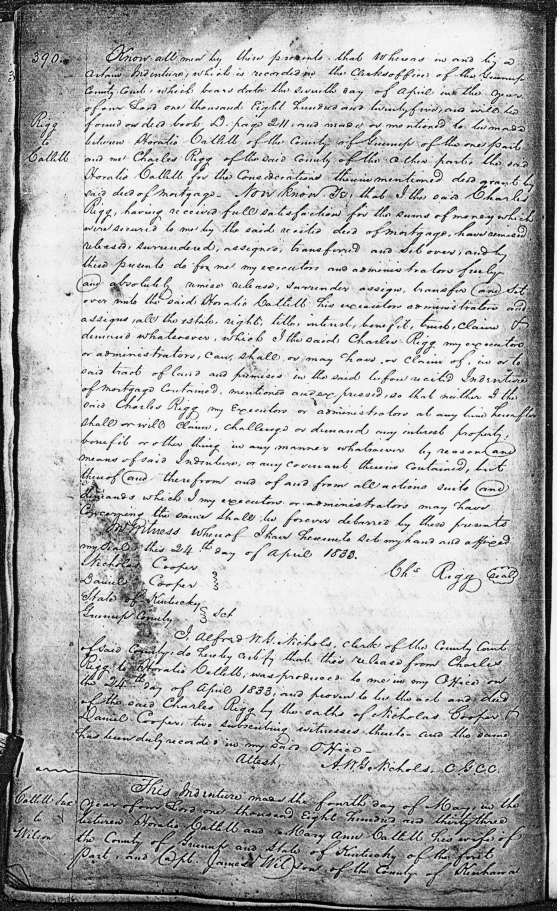 390.
Know all men by these presents, that whereas in and by a
certain Indenture, which is recorded in the Clerks office of the Greenup
County Court, which bears date the seventh day of April in the year
of our Lord one thousand Eight hundred and twenty five, and will be
found on deed book D. page 211 and made, or mentioned to be made
Rigg
to
Catlett
between Horatio Catlett of the County of Greenup of the one part
and me Charles Rigg of the said County of the other part, the said
Horatio Catlett for the Considerations therein mentioned did grant by
said deed of mortgage. Now Know Ye, that I the said Charles
Rigg, having received full satisfaction for the sums of money which
were secured to me by the said recited deed of mortgage, have remised
released, surrendered, assigned, transferred and set over, and by
these presents do for me my executors and administrators freely
and absolutely remise release, surrender assign, transfer and set
over unto the said Horatio Catlett his executors administrators and
assigns, all the estate, right, title, interest, benefit, trust, claim &
demand whatsoever, which I the said Charles Rigg my executors
or administrators, can, shall, or may have, or claim of, in or to
said tract of land and premises in the said before recited Indenture
of mortgage contained, mentioned and expressed, so that neither I the
said Charles Rigg my executors or administrators at any time hereafter
shall or will claim, challenge or demand any interest property,
benefit or other thing in any manner whatsoever by reason and
means of said Indenture, or any covenant therein contained, but
thereof and therefrom and of and from all actions suits and
demands which I my executors, or administrators may have
concerning the same shall be forever debarred by these presents
In Witness whereof I have hereunto set my hand and affixed
my seal this 24th day of April 1833.
Nicholas Cooper
Chs Rigg Seal
Daniel Cooper
State of Kentucky
Greenup County Sct
I Alfred W. G. Nichols, clerk of the County Court
of said County, do hereby certify that this release from Charles
Rigg to Horatio Catlett, was produced to me in my Office on
the 24th day of April 1833, and proven to be the act and deed
of the said Charles Rigg by the oaths of Nicholas Cooper &
Daniel Cooper, two subscribing witnesses thereto and the same
has been duly recorded in my said Office
Attest, A. W. G. Nichols. C.G.C.C.
This Indenture made the fourth day of May, in the
Catlett &c
to
Wilson
year of our Lord one thousand Eight hundred and thirty three
between Horatio Catlett and Mary Ann Catlett his wife of
the County of Greenup and state of Kentucky of the first
part, and Capt. James Wilson, of the County of Kenhawa